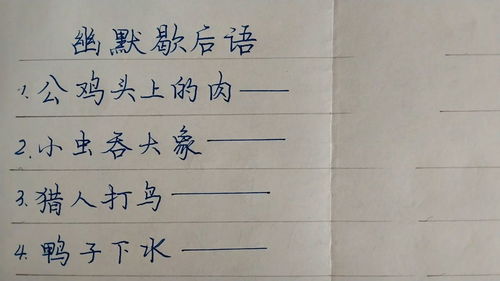 幽默歇后语
1.公鸡头上的肉——
2.小虫吞大象——
3.猎人打鸟——
4.鸭子下水——